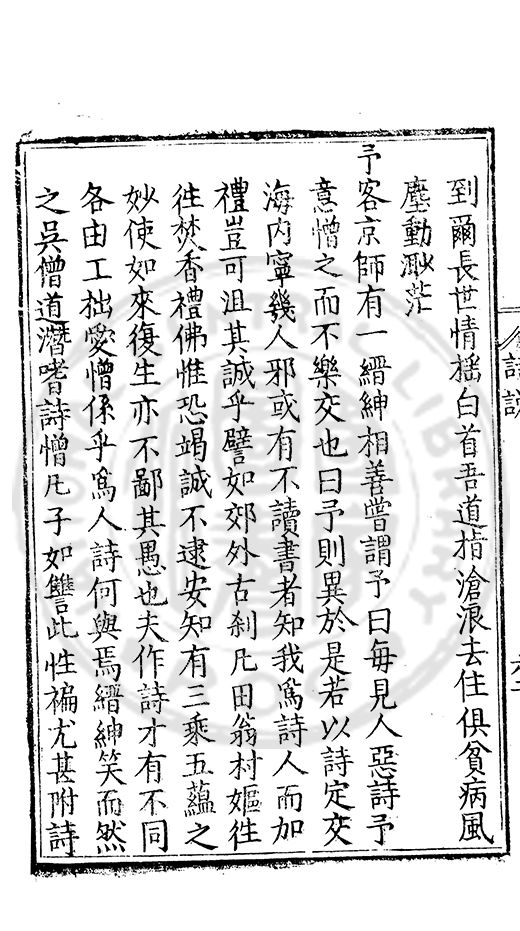 到爾長世情搖白首吾道指滄浪去住俱貧病風
塵動渺茫
予客京師有一縉紳相善嘗謂予曰每見人惡詩予
意憎之而不樂交也曰予則異於是若以詩定交
海内寧幾人邪或有不讀書者知我爲詩人而加
禮豈可沮其誠乎譬如郊外古刹凡田翁村嫗徃
徃焚香禮佛惟恐竭誠不逮安知有三乘五蘊之
妙使如來復生亦不鄙其愚也夫作詩才有不同
各由工拙愛憎係乎爲人詩何與焉縉紳笑而然
之吳僧道潛嗜詩憎凡子如讐此性褊尤甚附詩